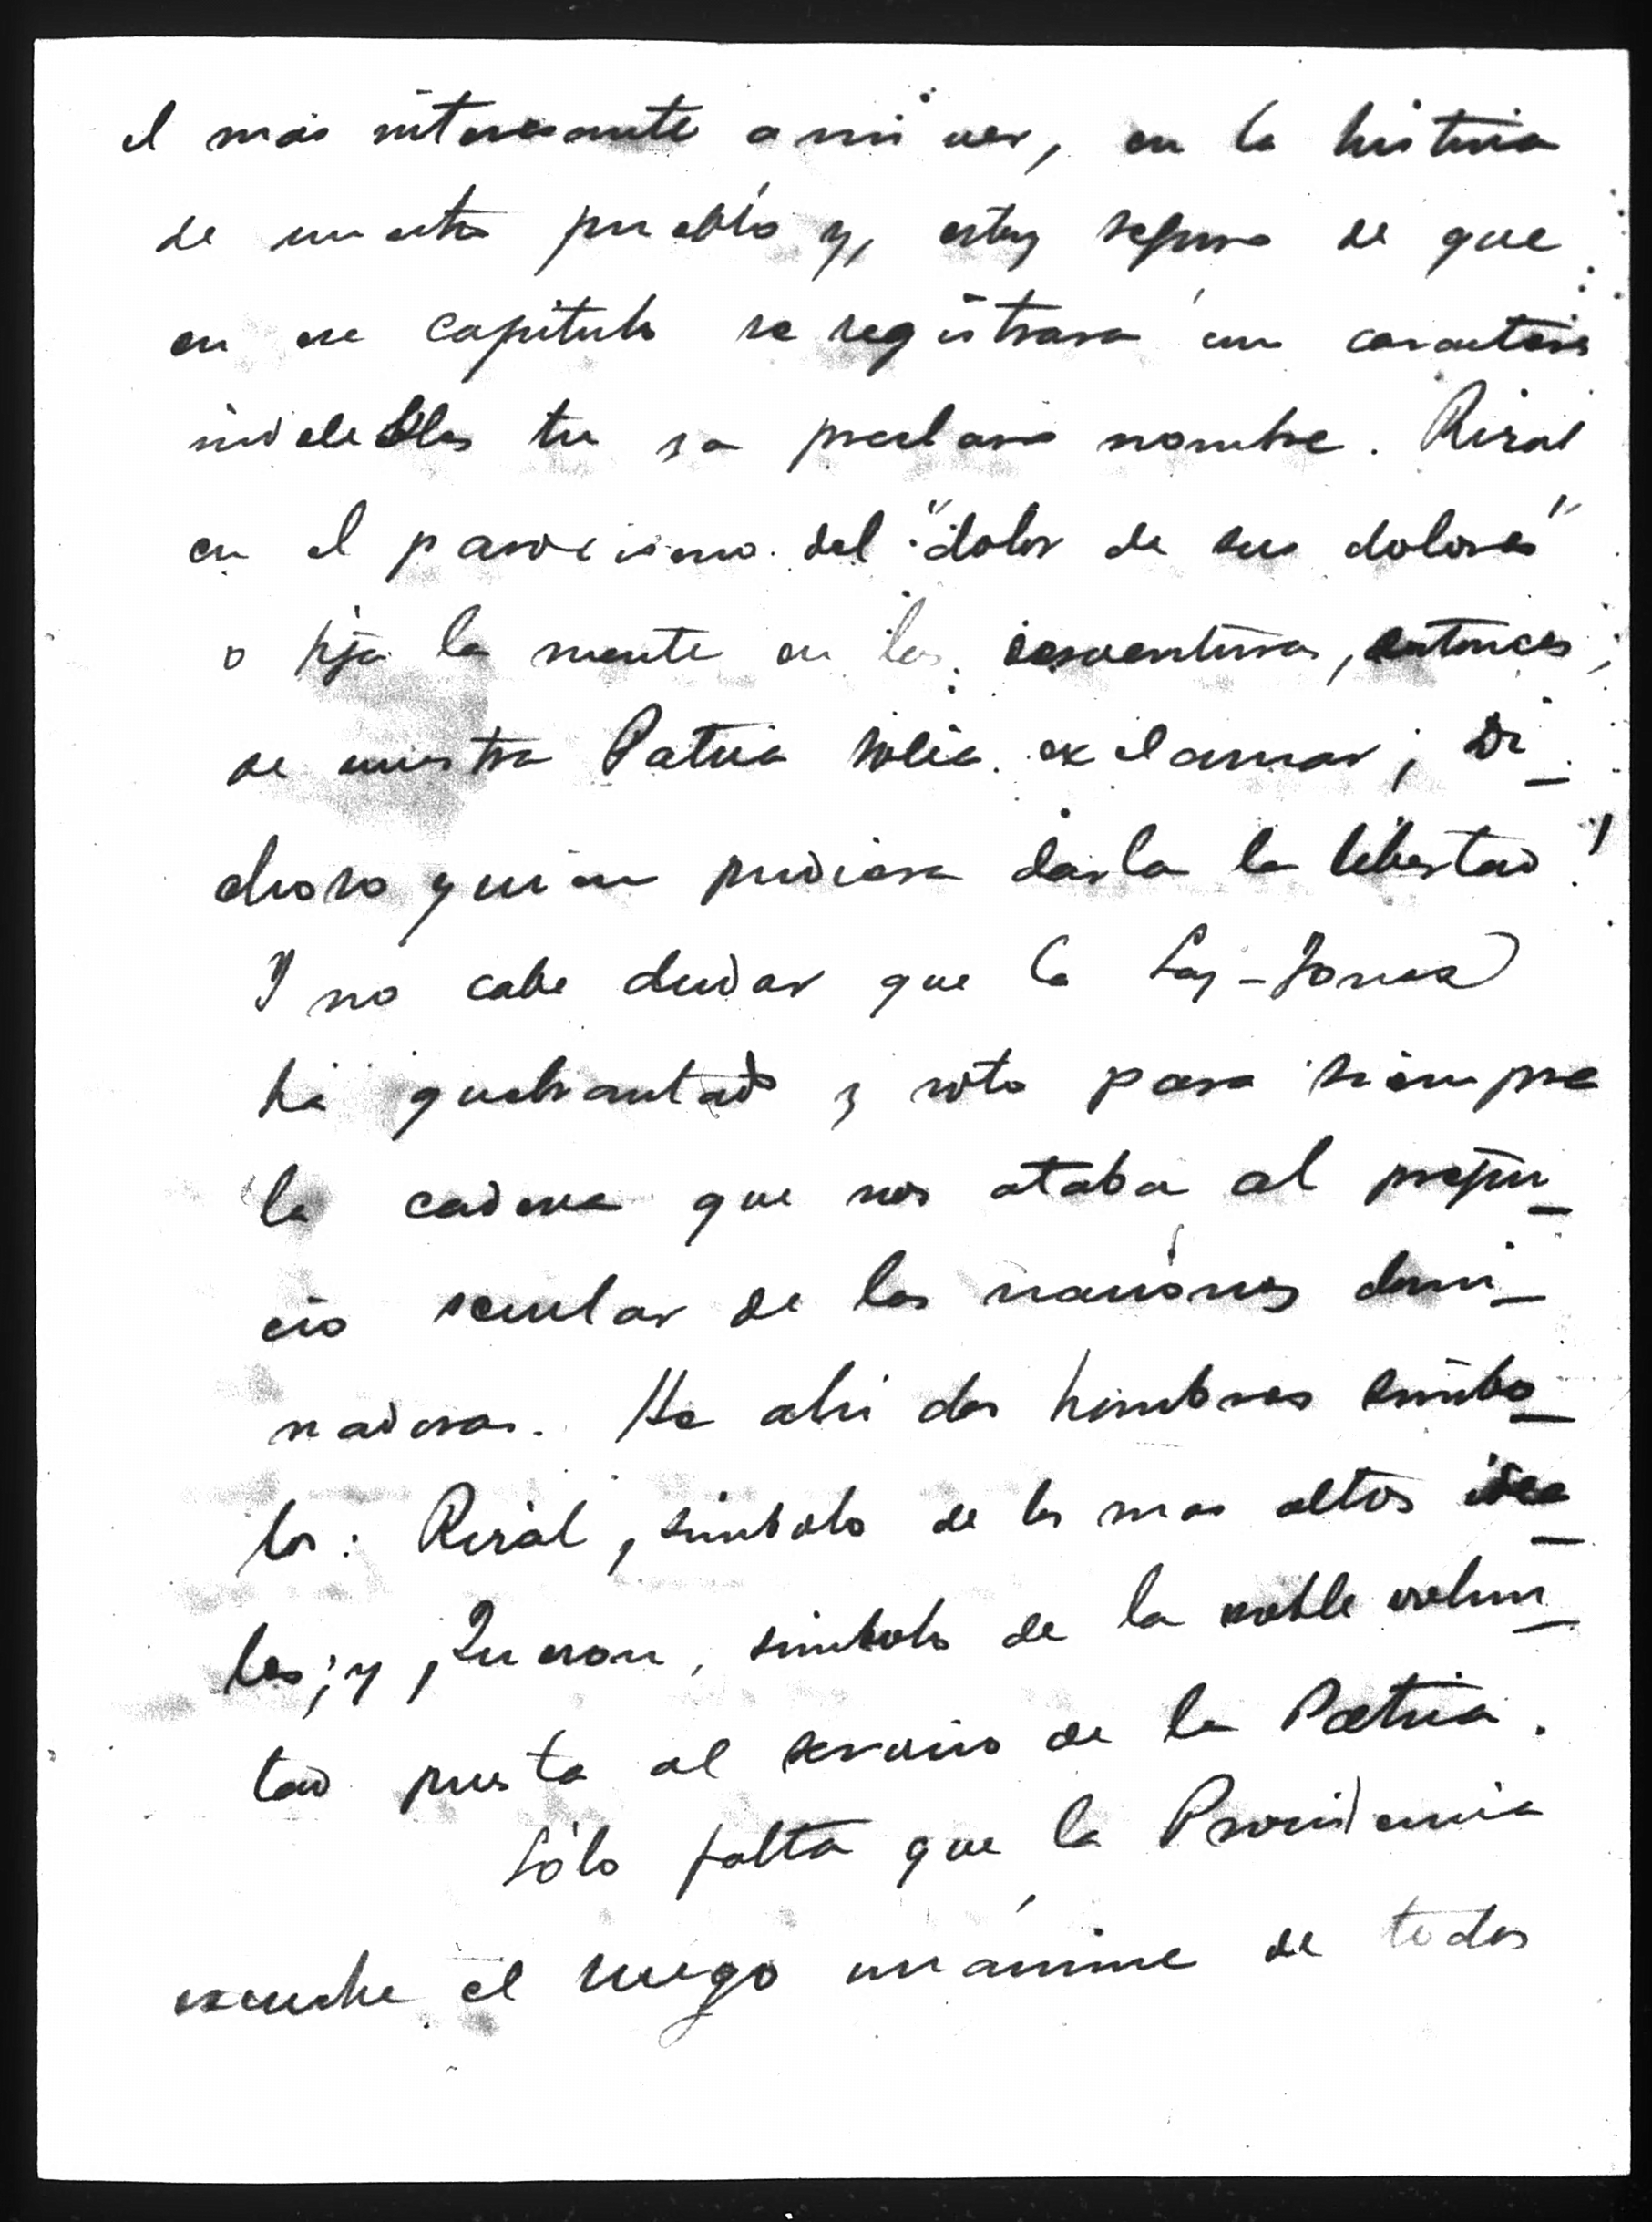 el más interesante a mi ver, en la historia
de nuestro pueblo y, estoy seguro de que
en ese capitulo se registrará en caracteres
indelebles tu ya preclaro nombre. Rizal
en el paroxismo del "dolor de sus dolores"
o fija la mente en las desventuras, entonces,
de nuestra Patria solía exclamar ¡Di-
choso quien pudiera darla la libertad!
Y no cabe dudar que la Ley-Jones
ha quebrantado y roto para siempre
la cadena que nos ataba al prejui-
cio secular de las naciones domi-
nadoras. He ahi dos hombres símbo-
los: Rizal, simbolo de los mas altos idea-
les; y, Quezon, simbolo de la noble volun-
tad puesta al servicio de la Patria.
Sólo falta que la Providencia
escuche el ruego unánime de todos